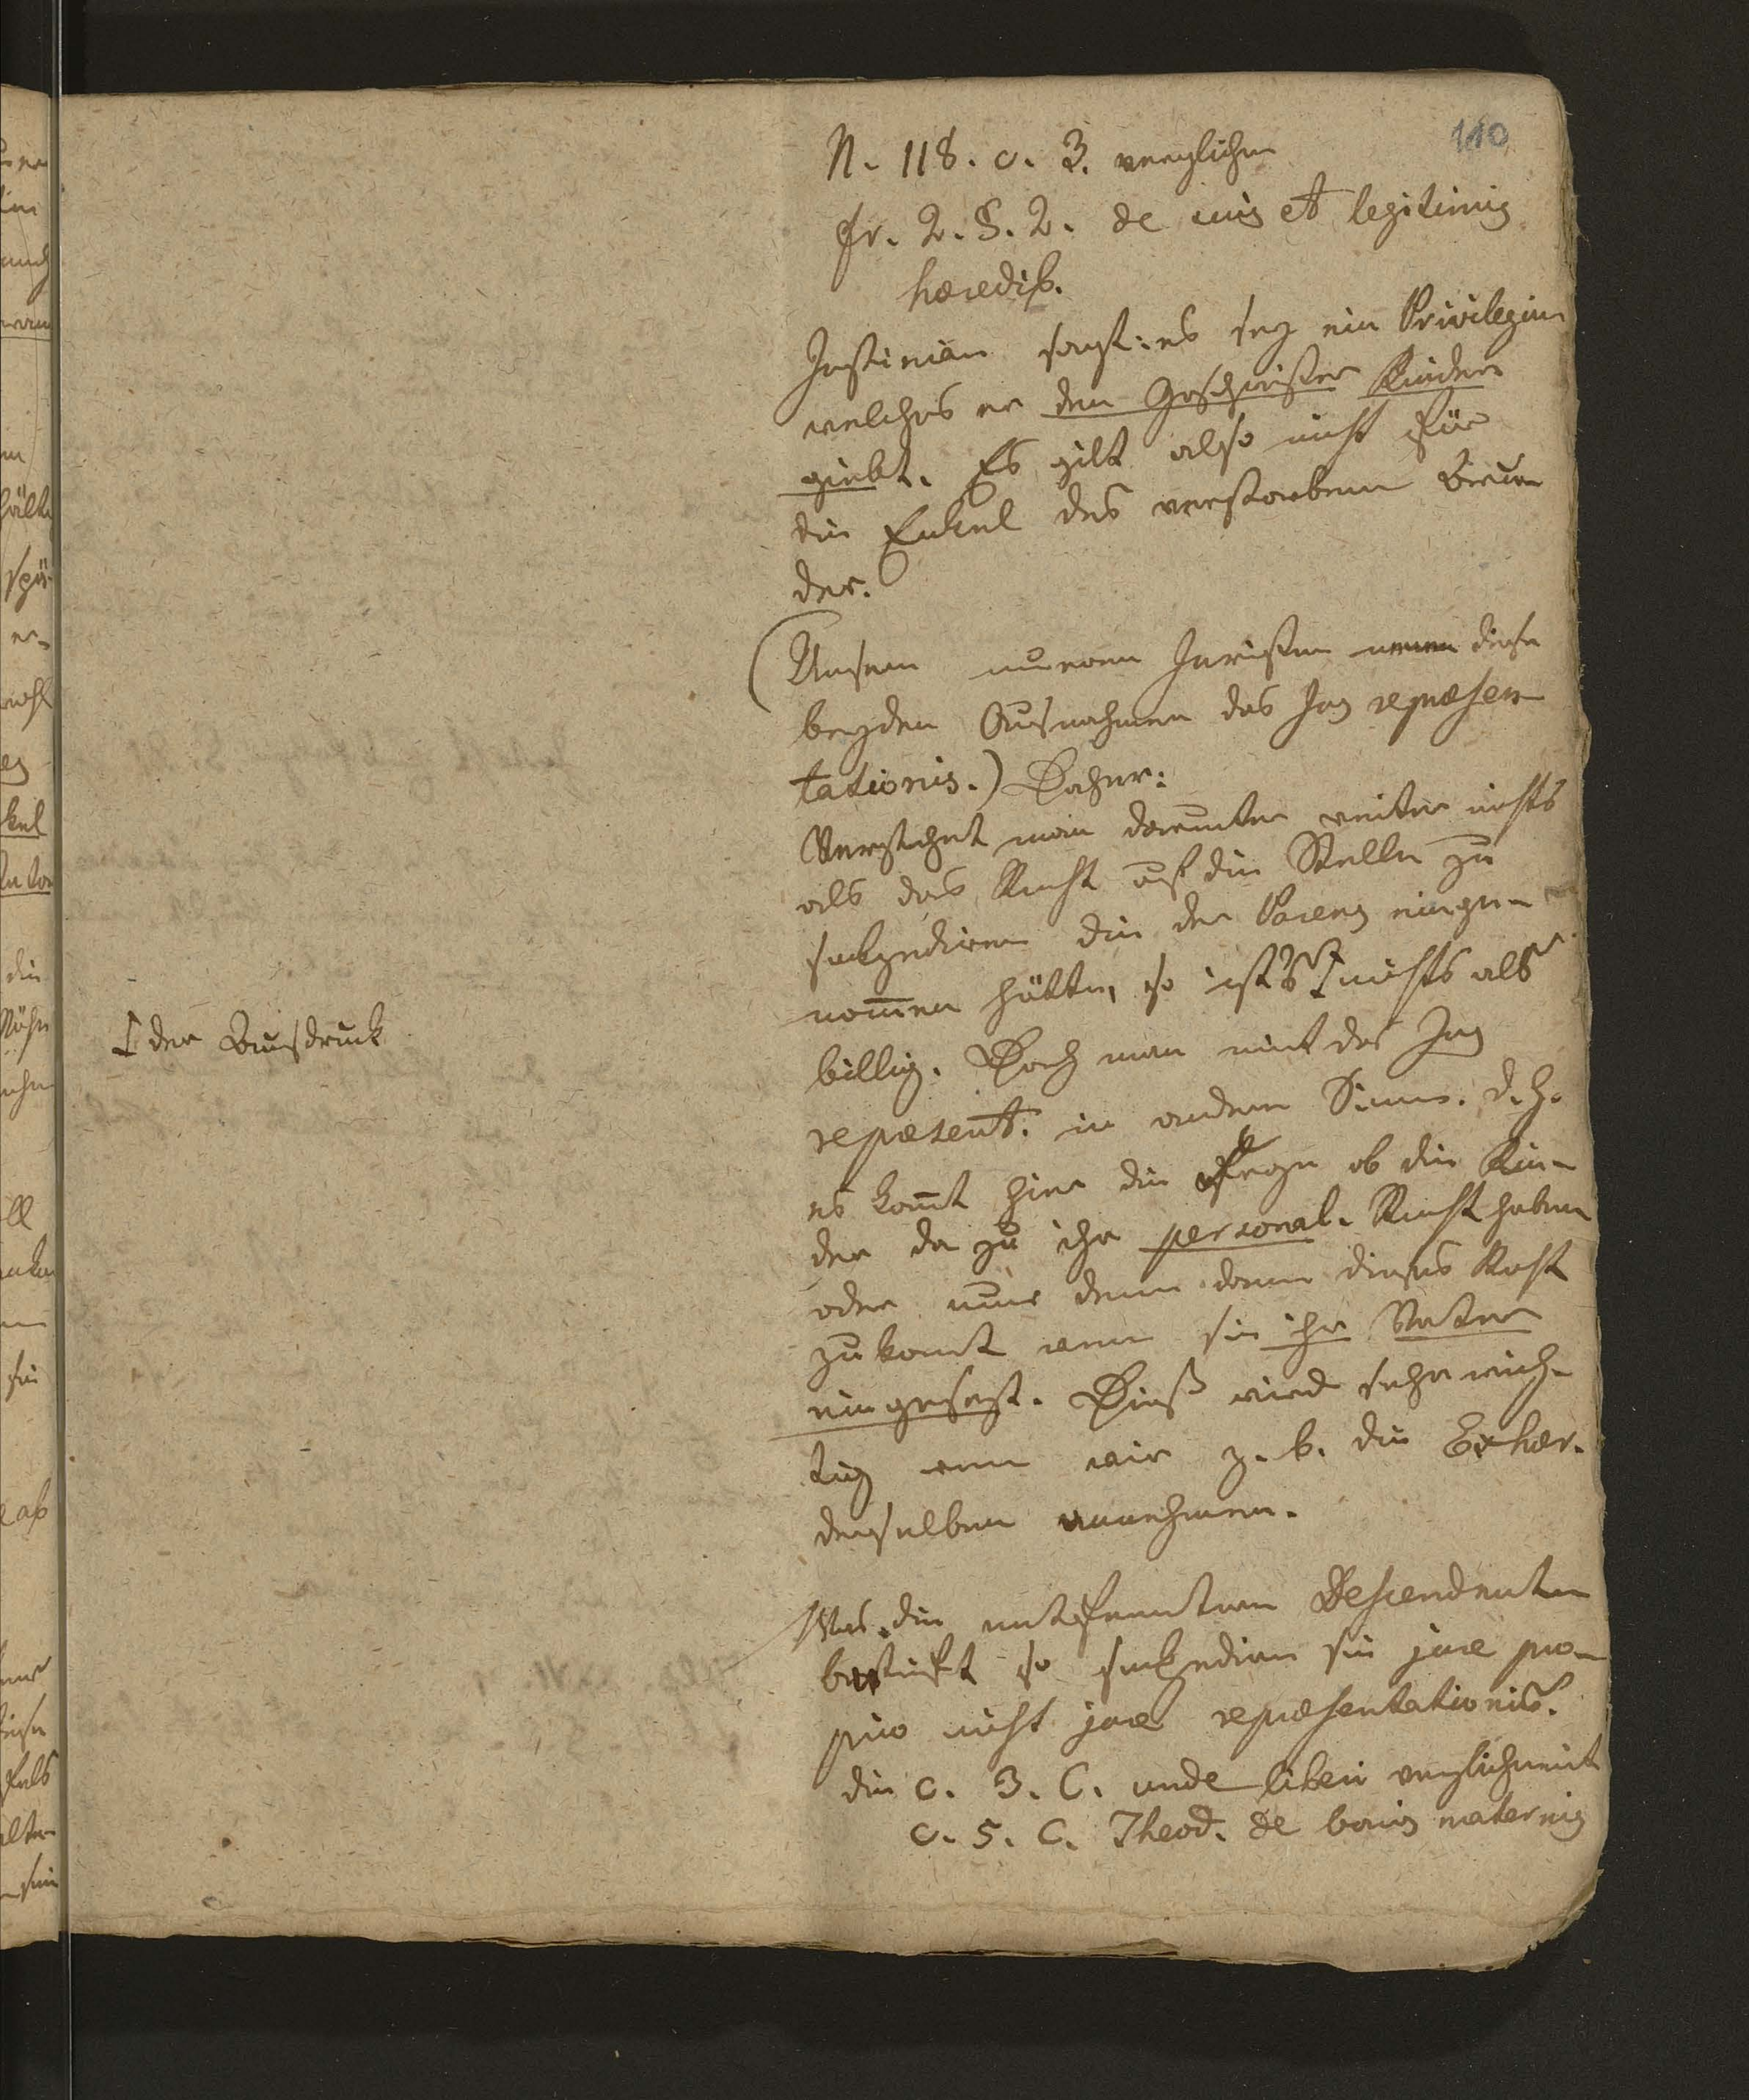 110
N. 118. c. 3. verglichen
fr. 2. §. 2. de suis et legitimis
hæredib.
Justinian sagt: es sey ein Privilegium
welches er den Geschwister Kindern
giebt. Es gilt also nicht für
die Enkel des verstorbenen Bru-
der.
(Unsere neueren Juristen nennen diese
beyden Ausnahmen das Jus repræsen-
tationis.) Daher:
Verstehet man darunter weiter nichts
als das Recht auf die Stelle zu
sukzediren die der Parens einge-
nom̄en hätte, so ist's nichts als
der Ausdruck
billig. Doch man nimt das Jus
repræsent. in anderm Sinne. d. h.
es kom̄t hier die Frage ob die Kin-
der da zu ihr personal-Recht haben
oder nur denn dann dieses Recht
zukomt wenn sie ihr Vater
eingesezt. Dieß wird sehr wich-
tig wenn wir z. b. die Exhær.
derselben annehmen.
Was die entferntern Descendenten
betrifft so sukzediren sie jure pro-
prio nicht jure repræsentationis.
die c. 3. C. unde liberi verglichen mit
c. 5. C. Theod. de bonis maternis